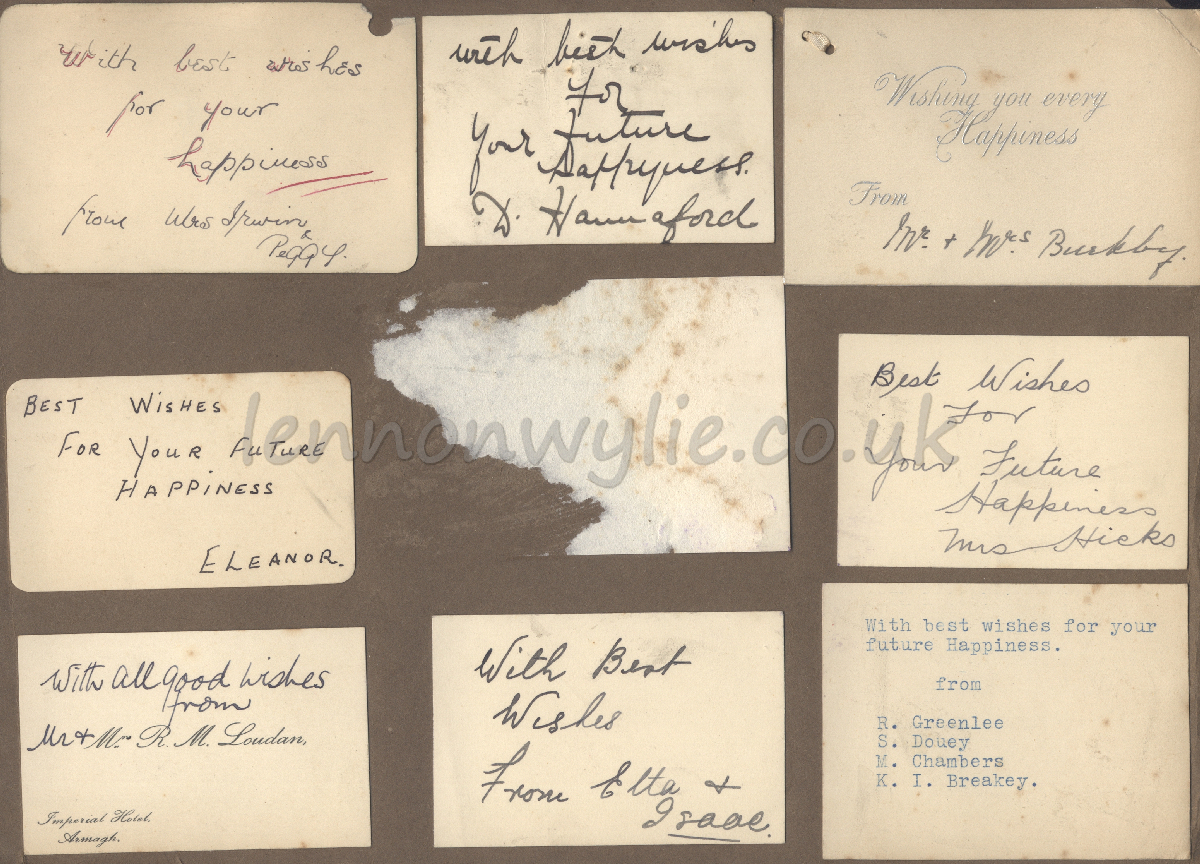 With best wishes
for your
happiness
from Mrs Irwin
&
Peggy.
with best wishes
for
Your Future
Happyness.
D. Hannaford
Wishing you every
Happiness
From
Mr. + Mrs Buckby.
BEST WISHES
FOR YOUR FUTURE
HAPPINESS
ELEANOR.
lennonwylie.co.uk
Best Wishes
For
Your Future
Happiness
Mrs Hicks
With all good wishes
from
Mr + Mrs R. M. Loudan,
Imperial Hotel,
Armagh.
With Best
Wishes
From Etta +
Isaac.
With best wishes for your
future Happiness.
from
R. Greenlee
S. Douey
M. Chambers
K. I. Breakey.